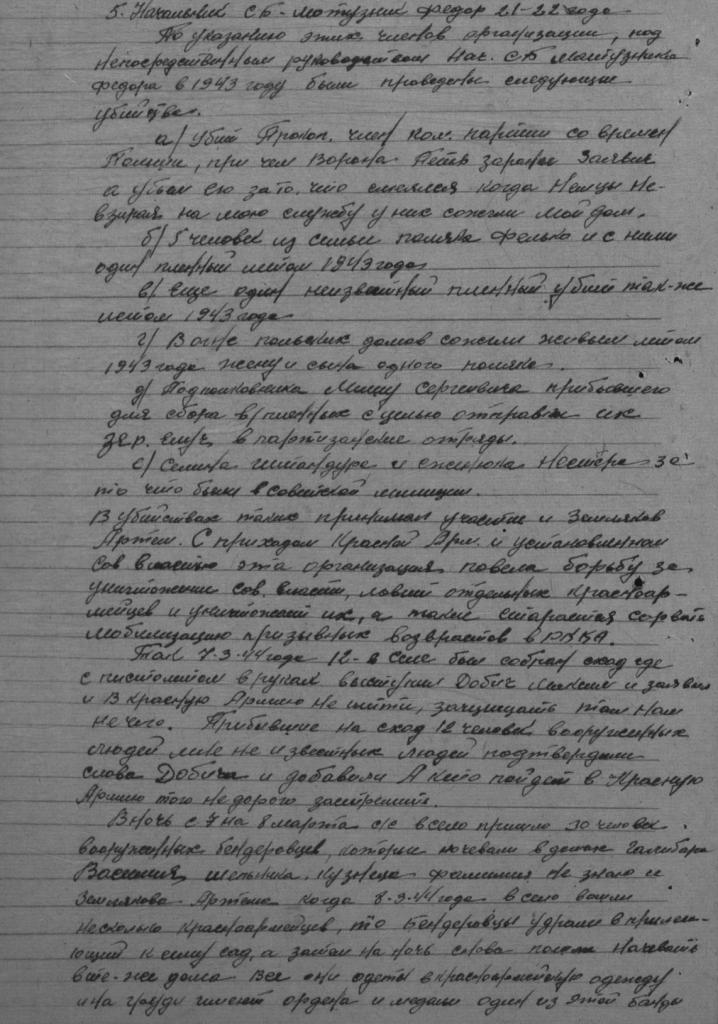 5. Начальник СБ - Мотузник Федор 21-22 года
По указанию этих членов организации, под
непосредственным руководством Нач. СБ Мотузника
Федора в 1943 году были проведены следующие
убийства.
а/ Убит Прокоп. член ком. партии со времен
Польши, при чем Ворона Петр заявил
а убил его за то, что смеялся когда немцы не-
взирая на мою службу у них сожгли мой дом.
б/ 5 человек из семьи поляка Фелько и с ними
один пленный летом 1943 года
в/ Еще один неизвестный пленный убит так-же
летом 1943 года
г/ В огне польских домов сожгли живым летом
1943 года жену и сына одного поляка.
д/ Подполковника Мишу Сергеевича прибывшего
для сбора в/пленных с целью отправки их
в партизанские отряды.
е/ Семена и Нестера за
то что были в советской милиции.
В убийствах также принимал участие и Земляков
Артем. С приходом Красной Арм. и установлением
сов властью эта организация повела борьбу за
уничтожение сов. власти, ловит отдельных красноар-
мейцев и уничтожает их, а также старается сорвать
мобилизацию призывных возврастов в РККА.
Так 7-3-44 года 12- в селе был собран сход где
с пистолетом в руках выступил Добич Максим и заявил
и В красную Армию не идти, защищать там нам
нечего. Прибывшие на сход 12 человек вооруженных
людей мне не известных людей подтвердили
слова Добича и добавили А кто пойдет в Красную
Армию того не дорого застрелить.
В ночь с 7 на 8 марта с/г в село пришло 30 человек
вооруженных бендеровцев, которые ночевали в домах
Василия, мельника. Кузнеца фамилия не знаю и
Землякова Артема когда 8-3-44 года в село вошли
несколько красноармейцев, то Бендеровцы удрали в прилега-
ющий к селу сад, а затем на ночь снова пошли начевать
в те-же дома Все они одеты в красноармейскую одежду
и на груди имеют ордена и медали один из этой банды